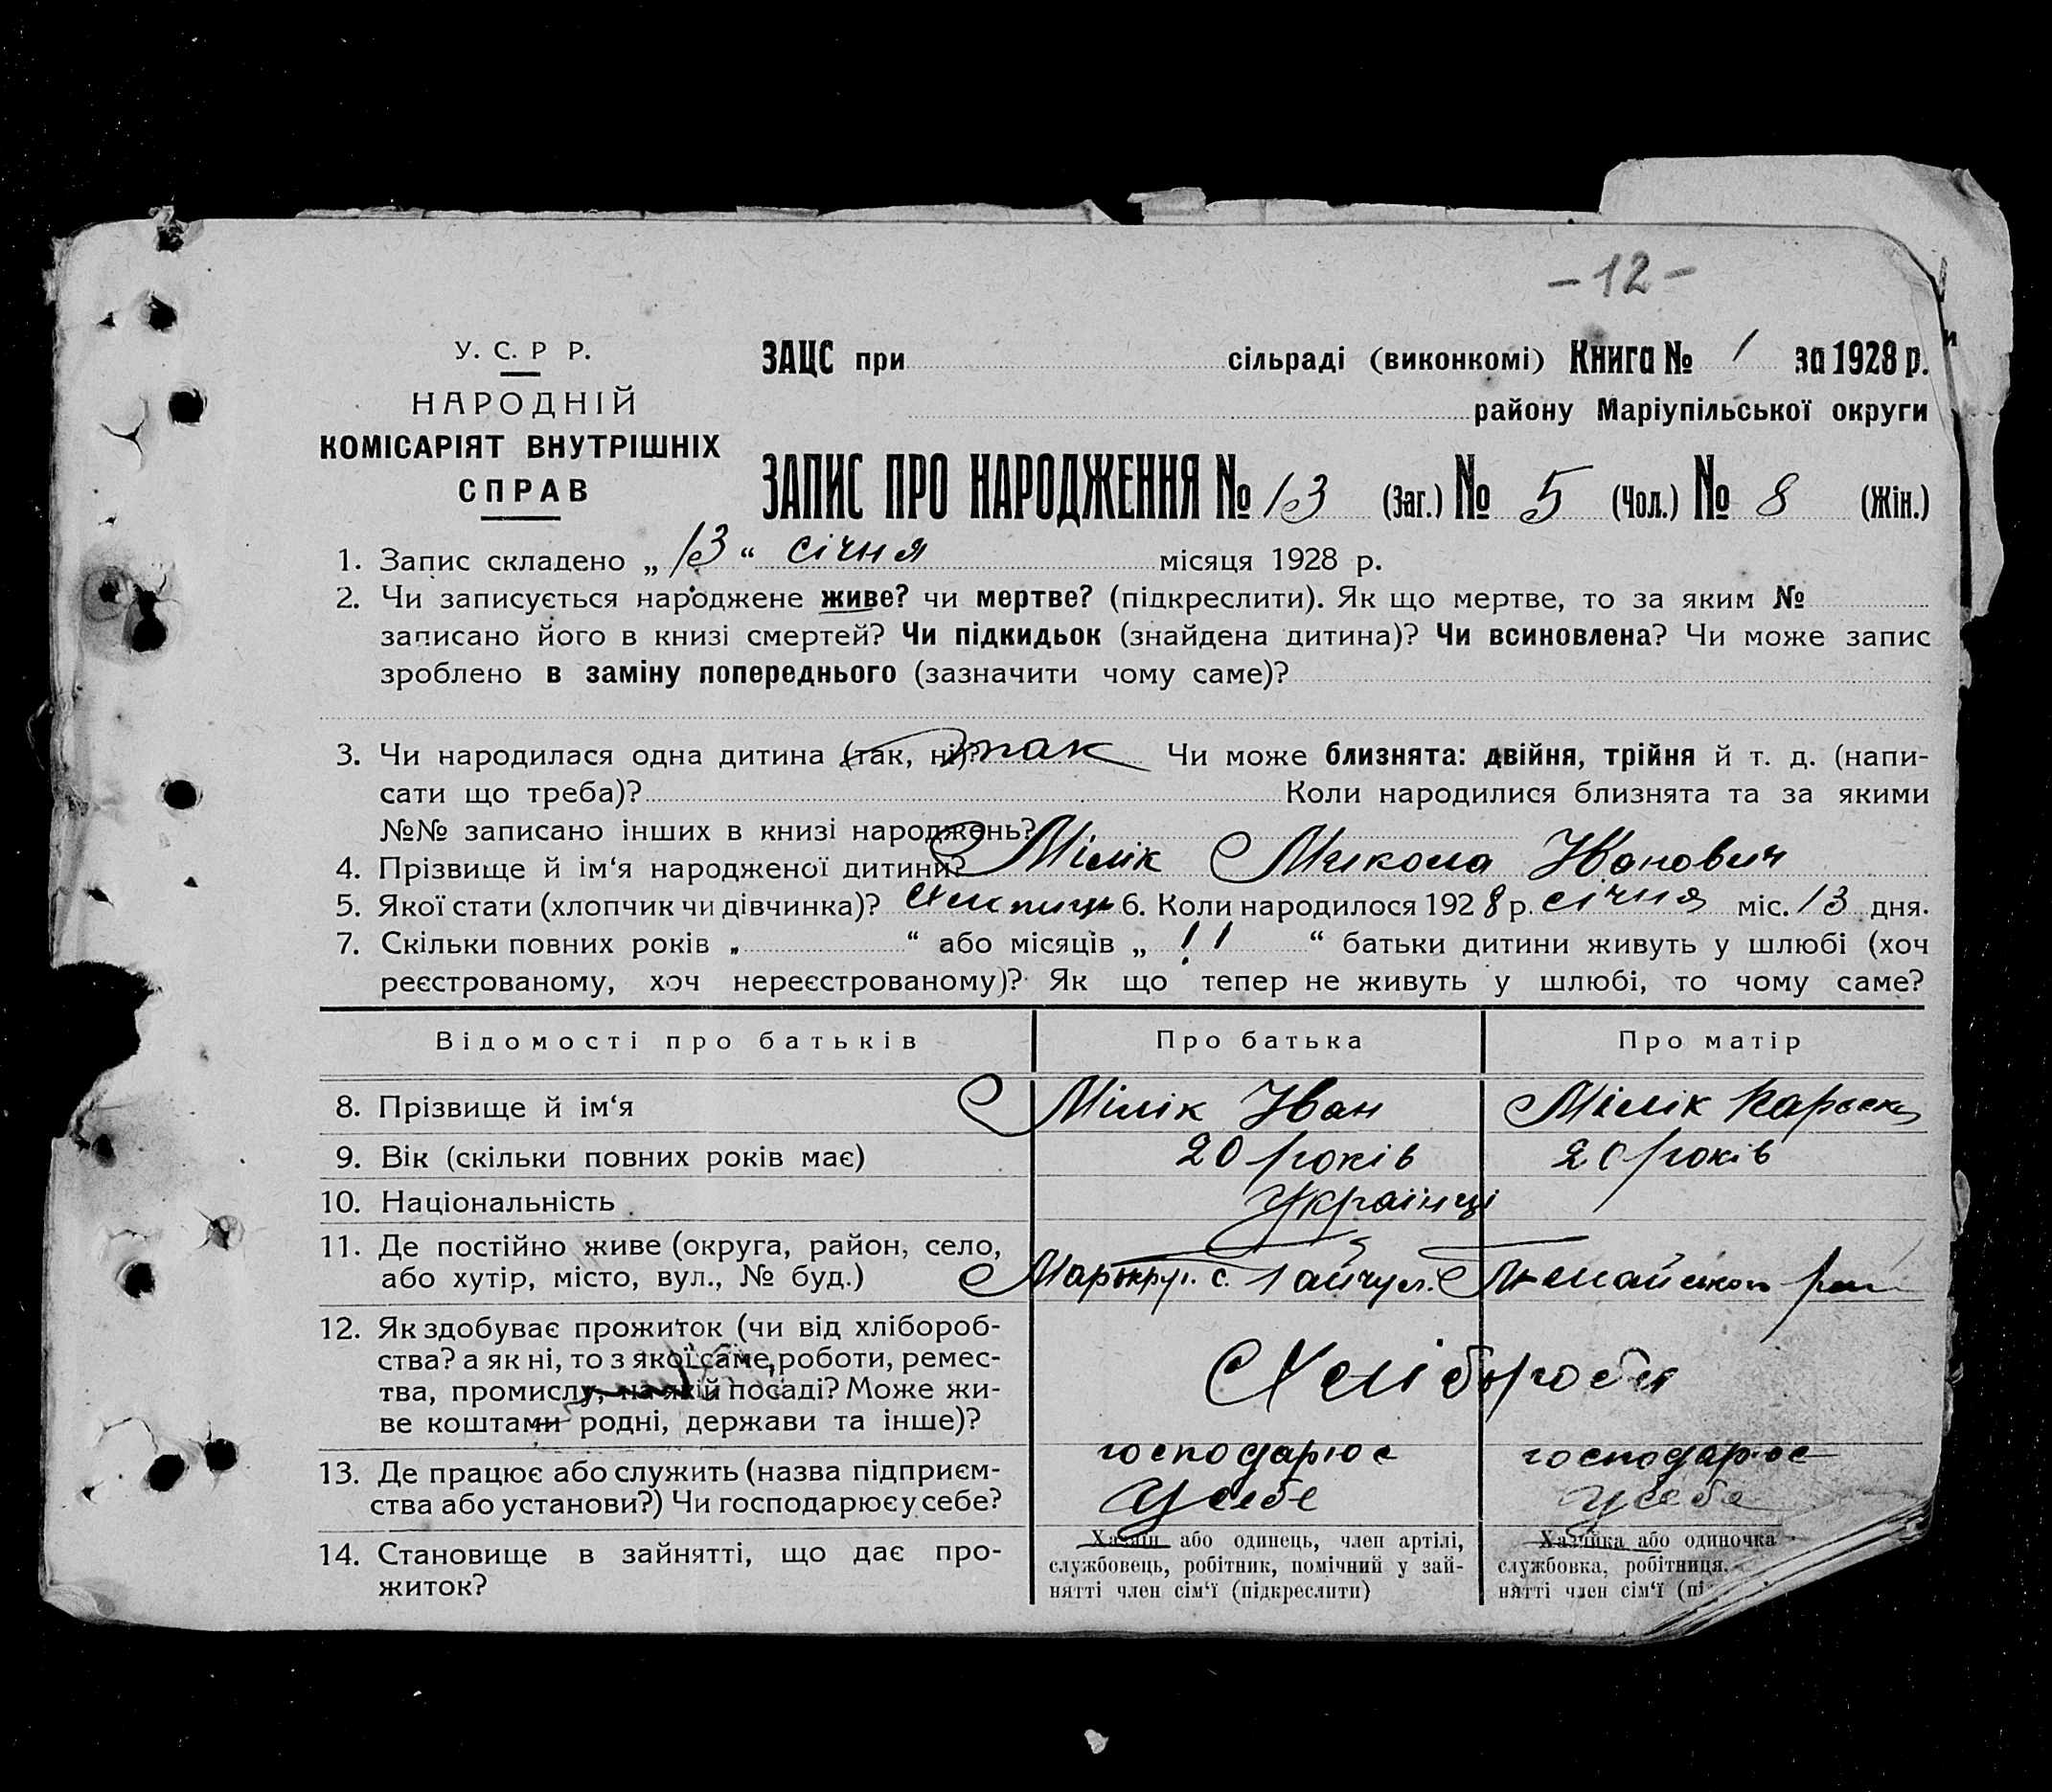 - 12 -
У. С. Р Р.
НАРОДНІЙ
КОМІСАРІЯТ ВНУТРІШНІХ
СПРАВ
ЗАЦС при сільраді (виконкомі) Книга № 1 за 1928 р.
району Маріупільської округи
ЗАПИС ПРО НАРОДЖЕННЯ № 13 (Заг.) № 5 (Чол.) № 8 (Жін.)
1. Запис складено „ 13 “ січня місяця 1928 р.
2. Чи записується народжене живе? чи мертве? (підкреслити). Як що мертве, то за яким №
записано його в книзі смертей? Чи підкидьок (знайдена дитина)? Чи всиновлена? Чи може запис
зроблено в заміну попереднього (зазначити чому саме)?
3. Чи народилася одна дитина (так, ні)? так Чи може близнята: двійня, трійня й т. д. (напи-
сати що треба)? Коли народилися близнята та за якими
№№ записано інших в книзі народжень?
4. Прізвище й ім‘я народженої дитини? Мілік Микола Іванович
5. Якої стати (хлопчик чи дівчинка)? 6. Коли народилося 1928 р. січня міс. 13 дня.
7. Скільки повних років „ “ або місяців „ 11 “ батьки дитини живуть у шлюбі (хоч
реєстрованому, хоч нереєстрованому)? Як що тепер не живуть у шлюбі, то чому саме?
Відомості про батьків Про батька Про матір
8. Прізвище й ім‘я Мілік Іван Мілік
9. Вік (скільки повних років має) 20 років 20 років
10. Національність Українці
11. Де постійно живе (округа, район, село,
або хутір, місто, вул., № буд.) с. Гайчул.
12. Як здобуває прожиток (чи від хлібороб-
ства? а як ні, то з якої саме роботи, ремес-
тва, промислу, на якій посаді? Може жи-
ве коштами родні, держави та інше)?
Хлібороби
13. Де працює або служить (назва підприєм-
ства або установи?) Чи господарює у себе?
господарює
у себе
господарює
у себе
14. Становище в зайнятті, що дає про-
житок?
Хазяїн або одинець, член артілі,
службовець, робітник, помічний у зай-
нятті член сім‘ї (підкреслити)
Хазяйка або одиночка
службовка, робітниця,
нятті член сім‘ї